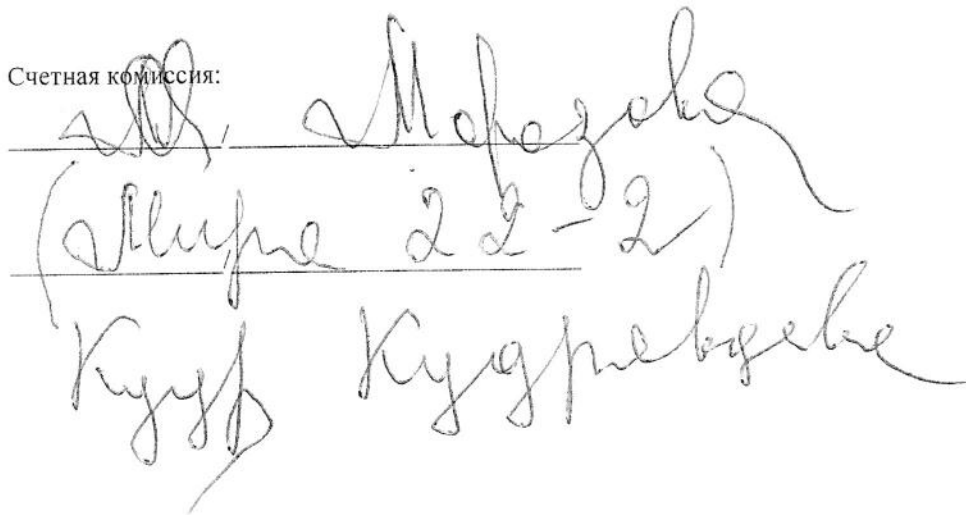 Счетная комиссия:
Морозова
(Мира 22-2)
Кудрявцева